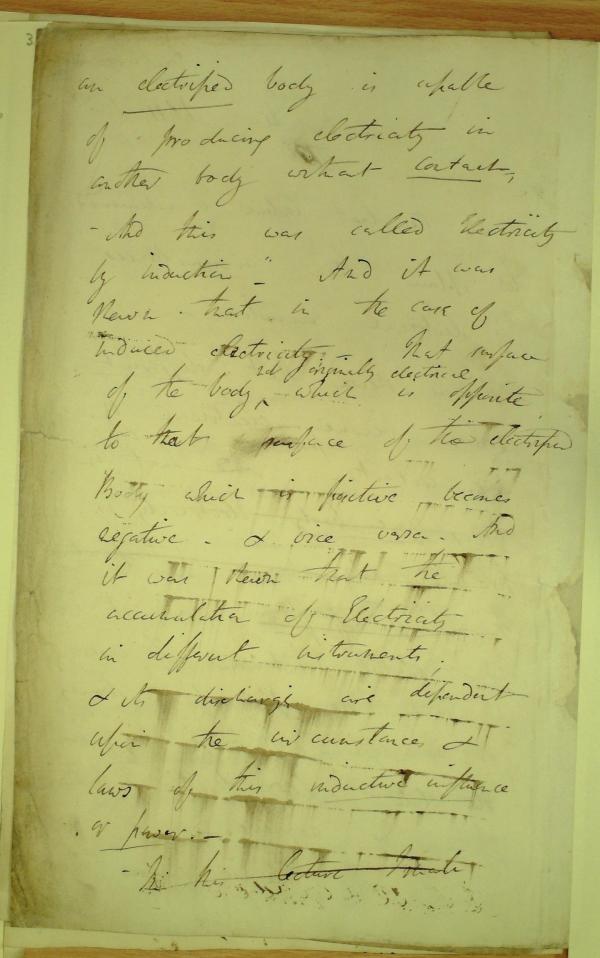 3
an electrified body is capable
of producing electricity in
another body without contact,
- And this was called Electricity
by induction" - And it was
shewn that in the case of
induced electricity. - That surface
not originally electrical
of the body ^ which is opposite
to that surface of the electrified
Body which is positive becomes
negative - & vice versa. And
it was shewn that the
accumulation of Electricity
in different instruments,
& its discharge are dependent
upon the circumstances &
laws of this inductive influence
or power. -
- In this lecture